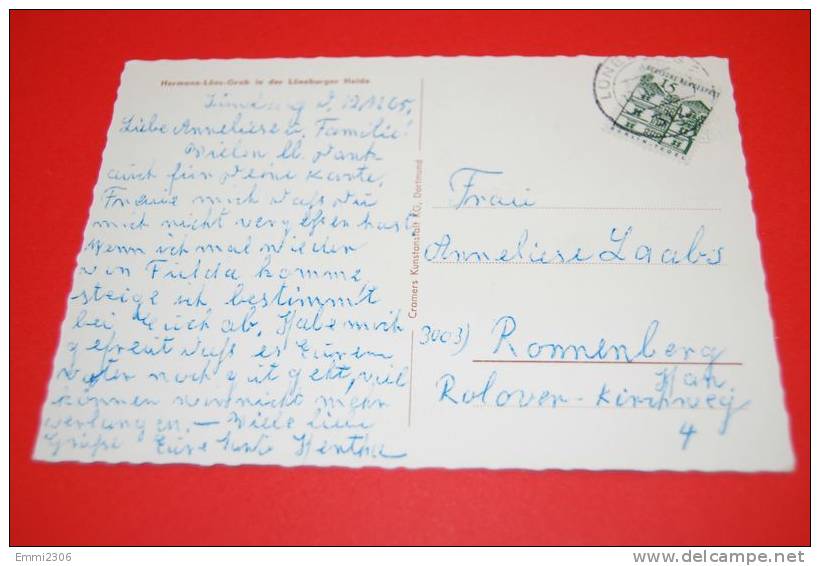 Hermann-Löns-Grab in der Lüneburger Heide
Lüneburg d. 12.12.65.
Liebe Anneliese u. Familie!
Vielen lb. Dank
auch für Deine Karte.
Freue mich daß Du
mich nicht vergessen hast
Wenn ich mal wieder
von Fulda komme
steige ich bestimmt
bei Euch ab. Habe mich
gefreut daß es Eurem
Vater noch gut geht, viel
können wir nicht mehr
verlangen. – Viele liebe
Grüße Eure Tante Hertha
Cramers Kunstanstalt KG, Dortmund
LÜNEBURG
DEUTSCHE BUNDESPOST
15
BERLIN-TEGEL
Frau
Anneliese Laabs
3003) Ronnenberg
Han
Rolover-Kirchweg
4
Emmi2306
www.delcampe.net